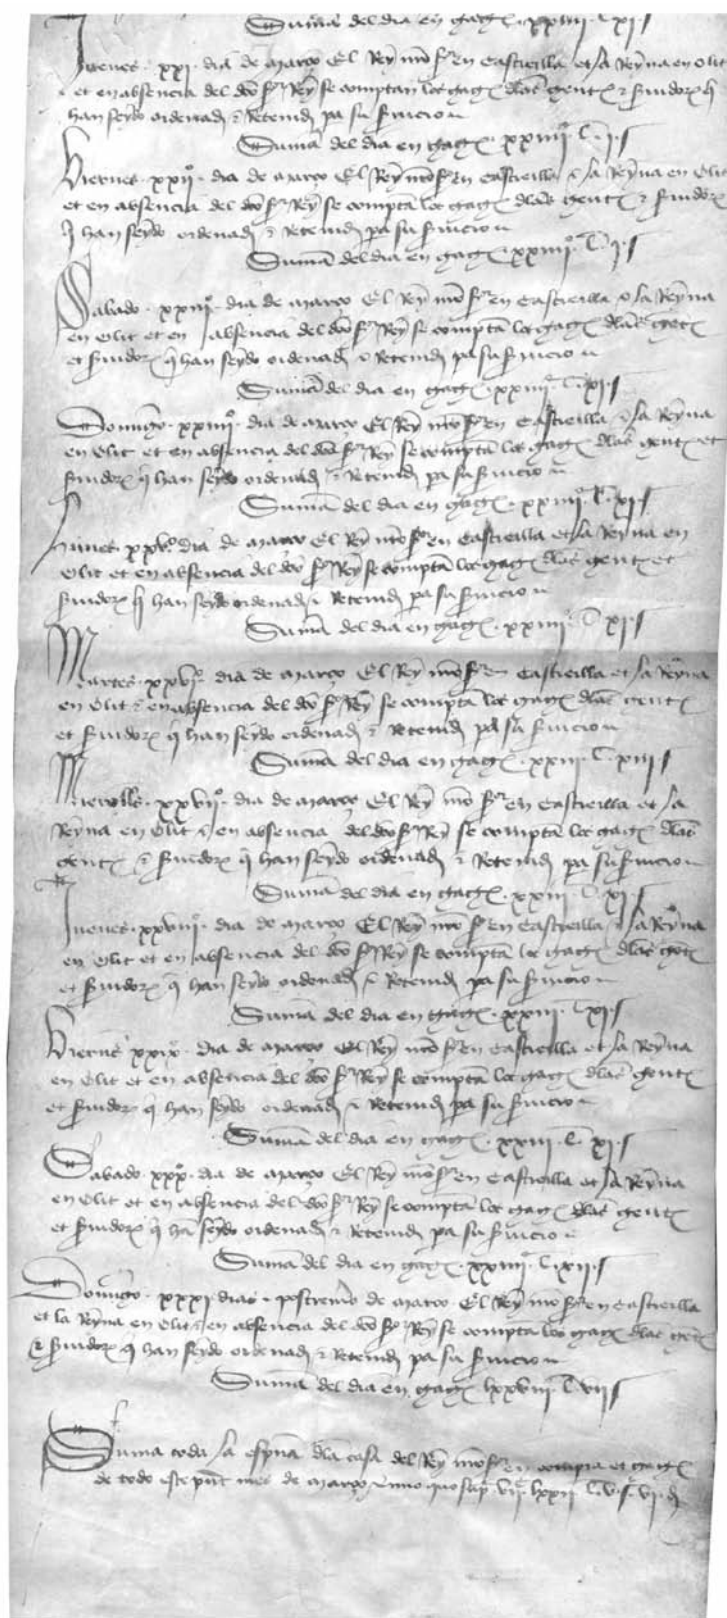 Suma del dia en gages xxiiii l xi s
Jueves xxi dia de março El Rey mo sr en Castieilla et la Reyna en olit
et en absencia del dco sr Rey se comptan los gages dlas gentes & suidores q
han seydo ordenads & Retenids pa su suicio
Suma del dia en gages xxiiii l i s
Viernes xxii dia de março El Rey mo sr en Castieilla & la Reyna en olit
et en absencia del dco sr Rey se compta los gages dlas gentes & suidores
q han seydo ordenads & Retenids pa su suicio
Suma del dia en gages xxiiii l i s
Sabado xxiii dia de março El Rey mo sr en Castieilla & la Reyna
en olit et en absencia del dco sr Rey se compta los gages dlas gentes
et suidores q han seydo ordenads & Retenids pa su suicio
Suma del dia en gages xxiiii l xi s
Domingo xxiiii dia de março El Rey mo sr en Castieilla & la Reyna
en olit et en absencia del dco sr Rey se compta los gages dlas gentes et
suidores q han seydo ordenads & Retenids pa su suicio
Suma del dia en gages xxiiii l xi s
Lunes xxv dia de março El Rey mo sr en Castieilla et la Reyna en
olit et en absencia del dco sr Rey se compta los gages dlas gentes et
suidores q han seydo ordenads & Retenids pa su suicio
Suma del dia en gages xxiiii l xi s
Martes xxvi dia de março El Rey mo sr en Castieilla et la Reyna
en olit & en absencia del dco sr Rey se compta los gages dlas gentes
et suidores q han seydo ordenads & Retenids pa su suicio
Suma del dia en gages xxiii l xiii s
Miercoles xxvii dia de março El Rey mo sr en Castieilla et la
Reyna en olit & en absencia del dco sr Rey se compta los gages dlas
gentes & suidores q han seydo ordenads & Retenids pa su suicio
Suma del dia en gages xxiii l xi s
Jueves xxviii dia de março El Rey mo sr en Castieilla & la Reyna
en olit et en absencia del dco sr Rey se compta los gages dlas gentes
et suidores q han seydo ordenads & Retenids pa su suicio
Suma del dia en gages xxiii l xi s
Viernes xxix dia de março El Rey mo sr en Castieilla et la Reyna
en olit et en absencia del dco sr Rey se compta los gages dlas gentes
et suidores q han seydo ordenads & Retenids pa su suicio
Suma del dia en gages xxiii l xi s
Sabado xxx dia de março El Rey mo sr en Castieilla et la Reyna
en olit et en absencia del dco sr Rey se compta los gages dlas gentes
et suidores q han seydo ordenads & Retenids pa su suicio
Suma del dia en gages xxiiii l xii s
Domingo xxxi dias postremo de março El Rey mo sr en Castieilla
et la Reyna en olit & en absencia del dco sr Rey se compta los gages dlas gentes
& suidores q han seydo ordenads & Retenids pa su suicio
Suma del dia en gages lxxviii l vii s
Suma toda la espensa dla casa del Rey mo sr en compra et gages
de todo este mes de março vii lxxii l v s vi d